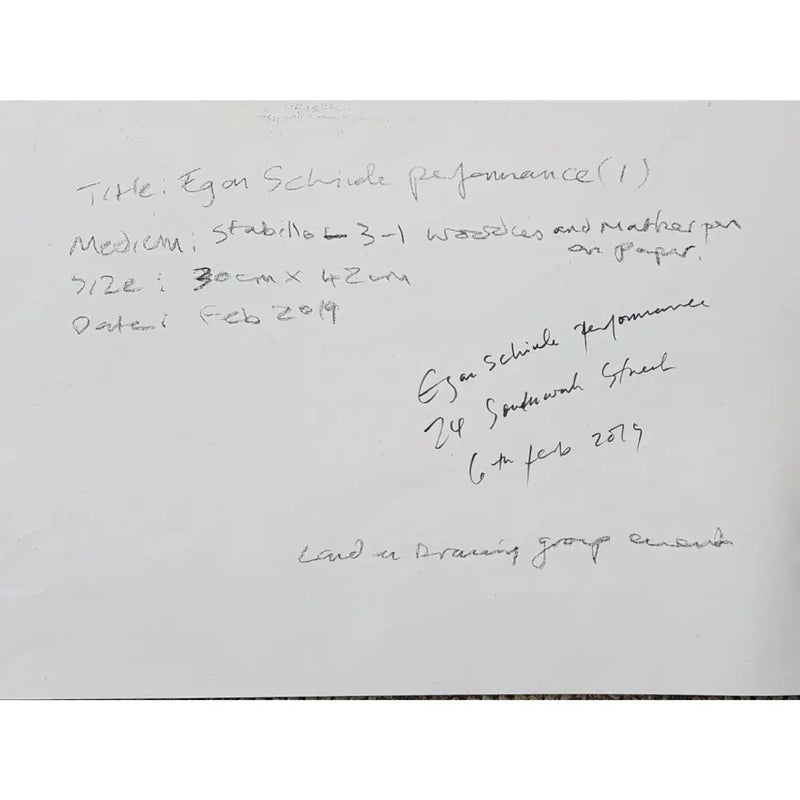 Title: Egon Schiele performance (1)
Medium: Stabillo - 3-1 woodies and marker pen
on paper.
Size: 30cm x 42cm
Date: Feb 2019
Egon Schiele performance
24 Southwark Street
6th feb 2019
London Drawing group event